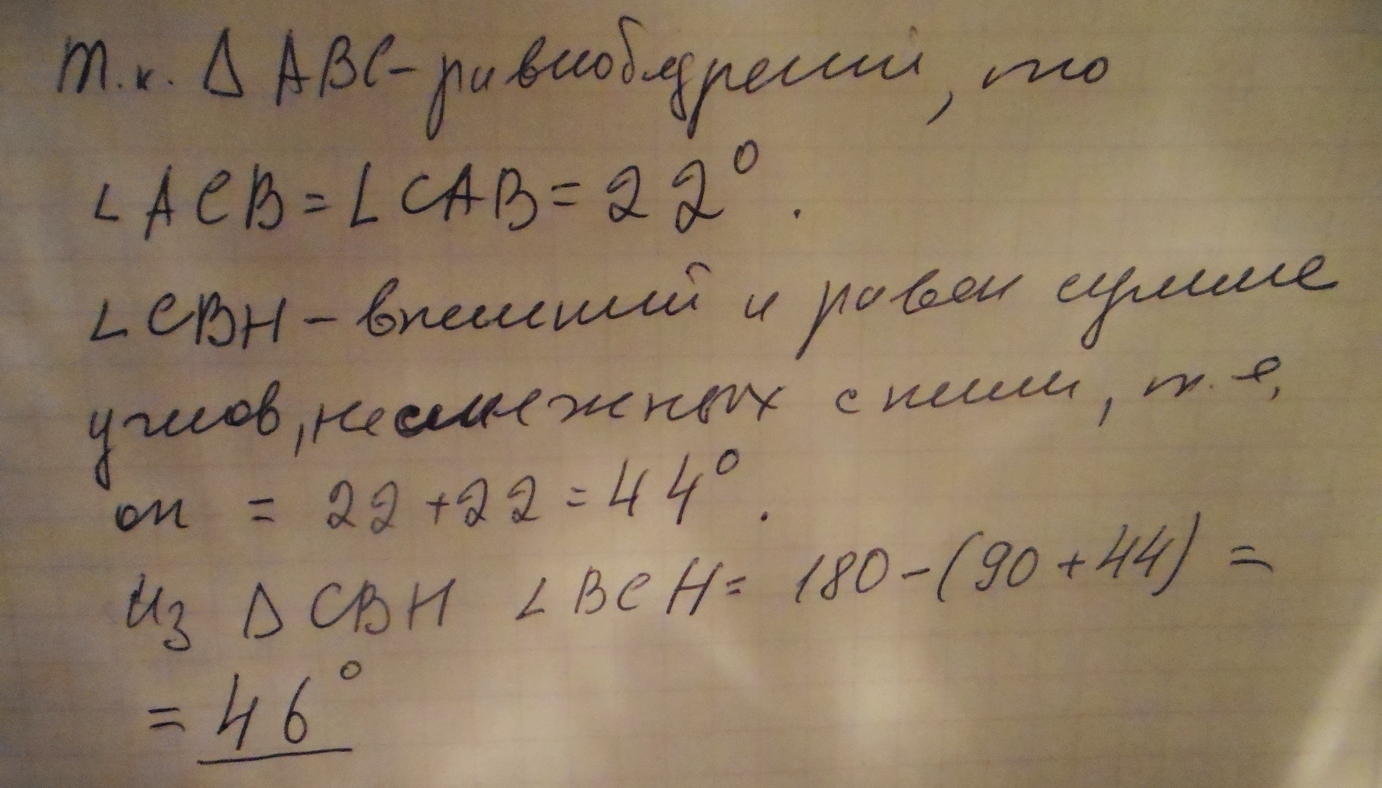 Т.к. Δ ABC - равнобедренный, то
∠ ACB = ∠ CAB = 22°.
∠ CBH - внешний и равен сумме
углов, несмежных с ним, т.е.
он = 22 + 22 = 44°.
Из Δ CBH ∠ BCH = 180 - (90 + 44) =
= 46°